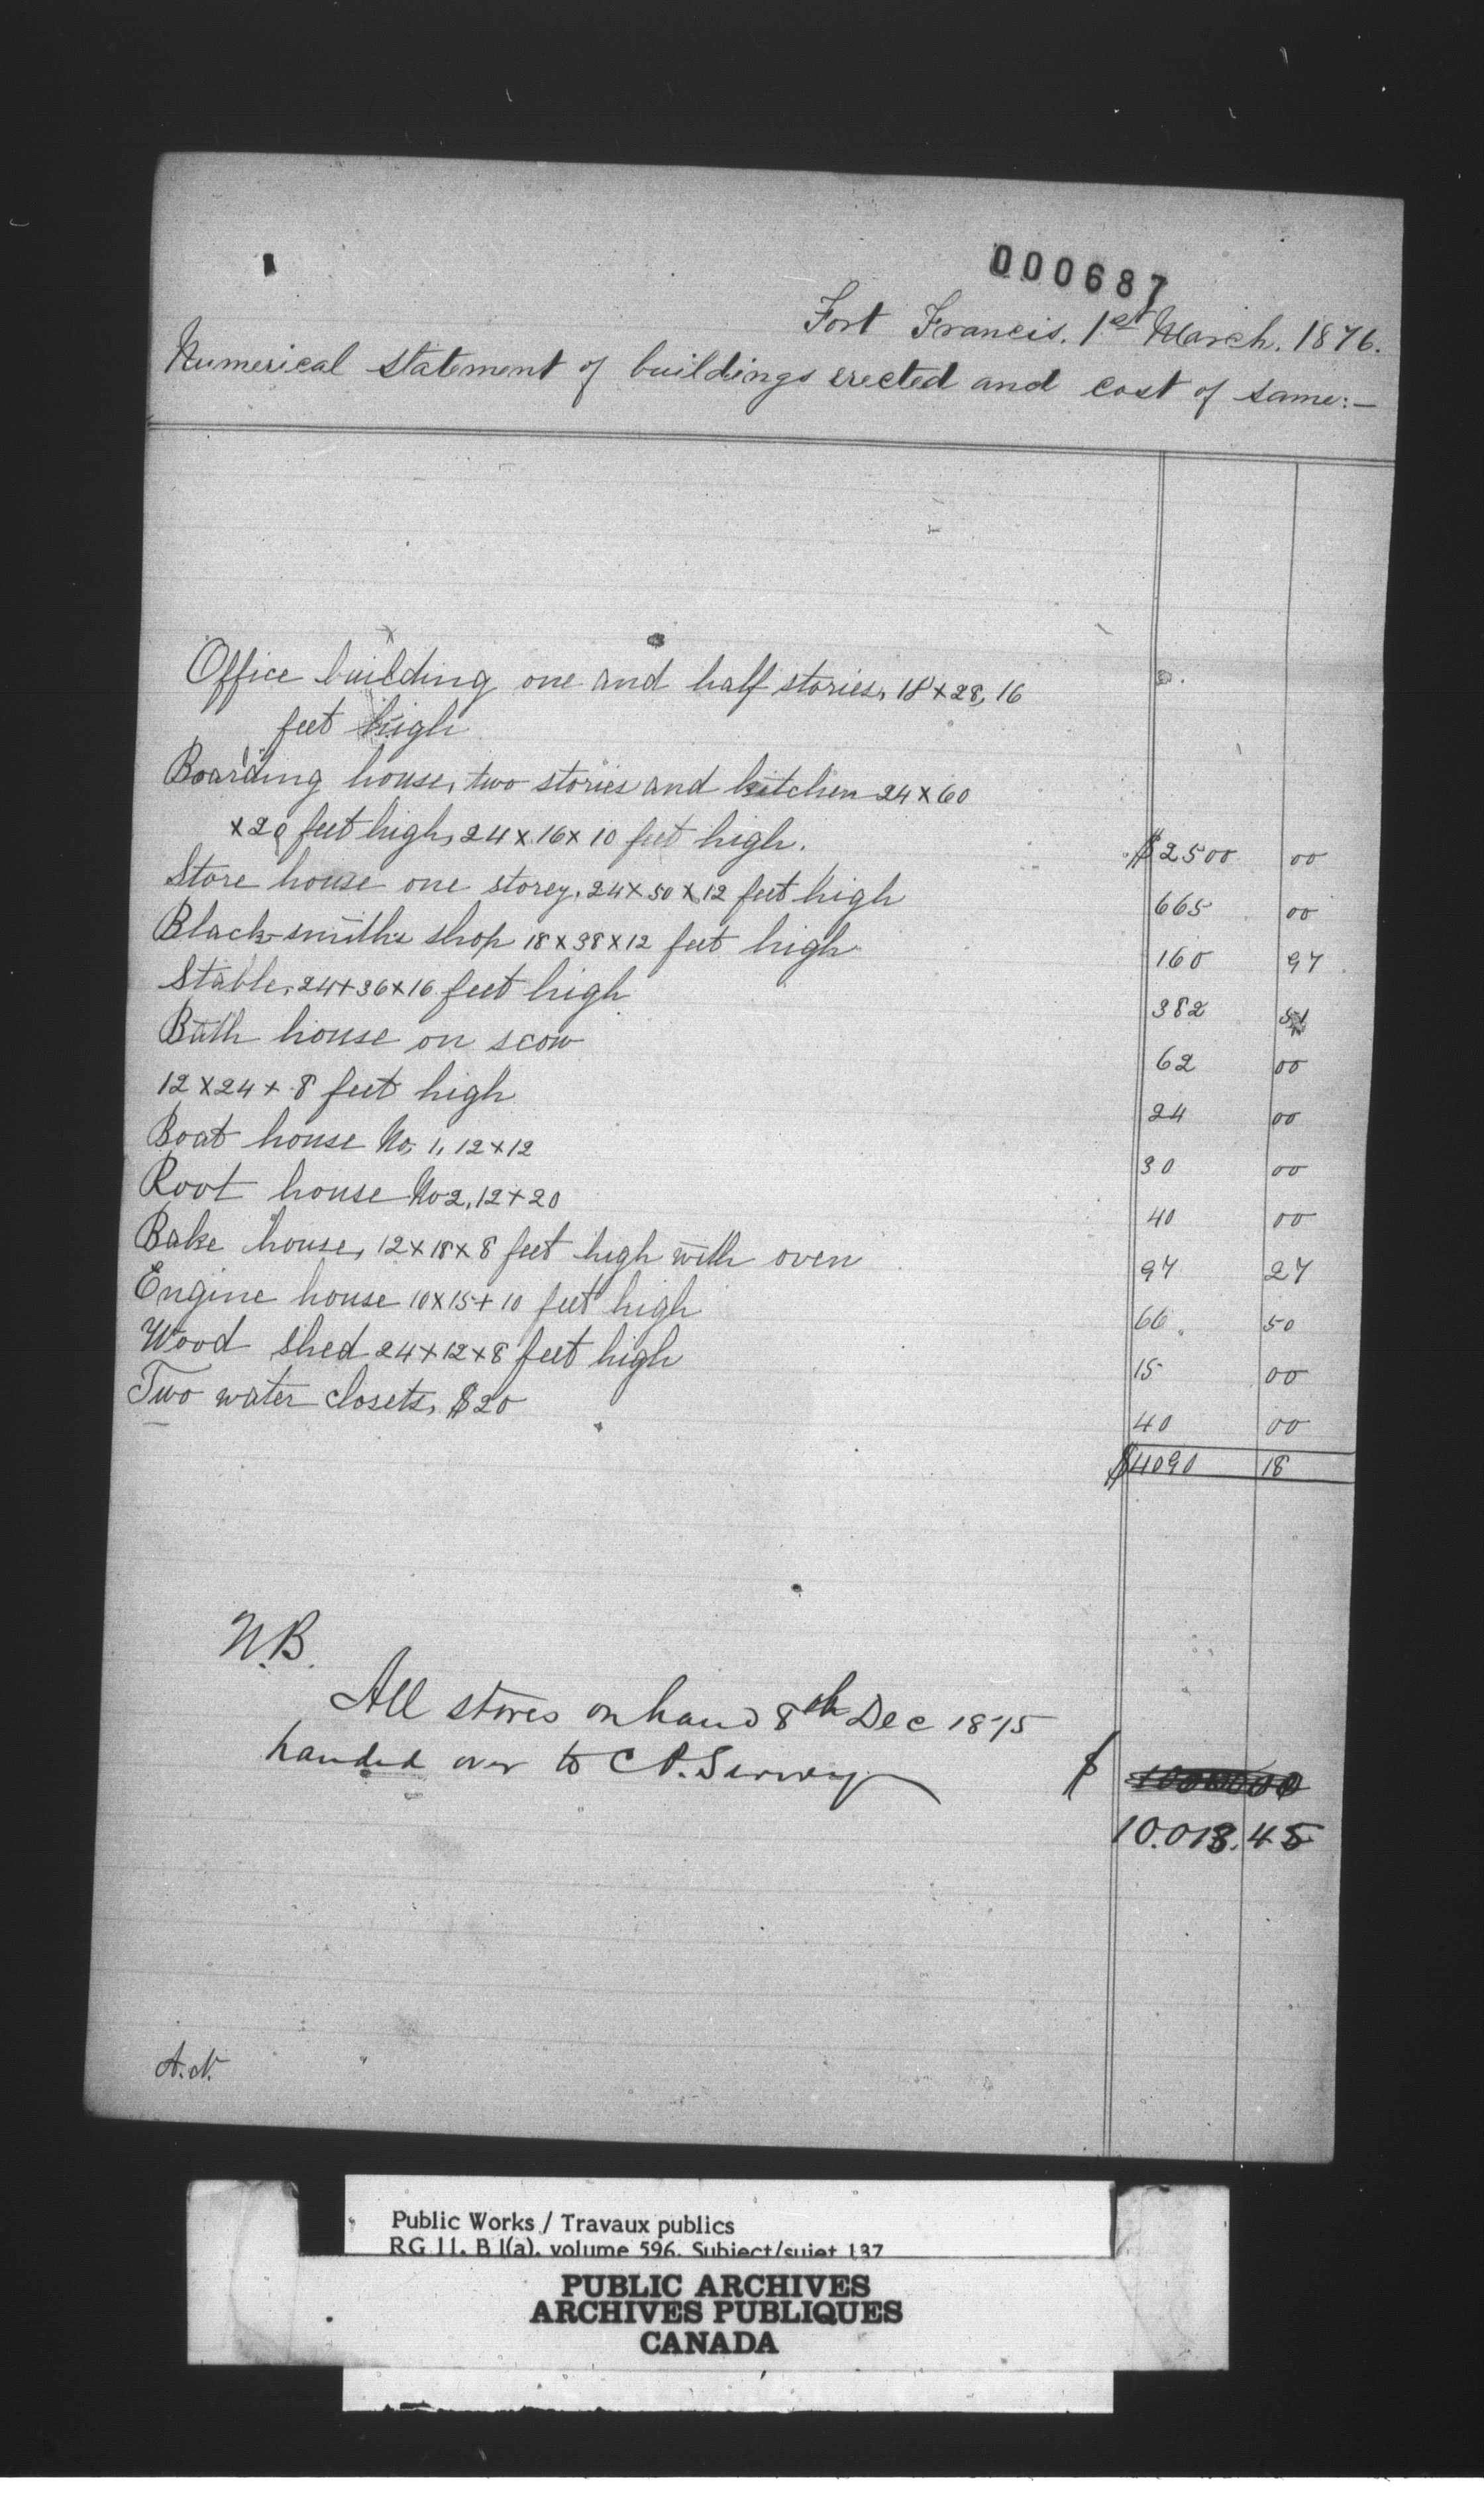 000687
Fort Francis. 1st March. 1876.
Numerical statement of buildings erected and cost of same:—
Office building one and half stories, 18 x 28, 16
feet high
Boarding house, two stories and kitchen 24 x 60
x 20 feet high, 24 x 16 x 10 feet high. $2500 00
Store house one storey, 24 x 50 x 12 feet high 665 00
Black-smith's shop 18 x 38 x 12 feet high 160 97
Stable, 24 x 36 x 16 feet high 382 51
Bath house on scow 62 00
12 x 24 x 8 feet high 24 00
Boat house No. 1, 12 x 12 30 00
Root house No 2, 12 x 20 40 00
Bake house, 12 x 18 x 8 feet high with oven 97 27
Engine house 10 x 15 x 10 feet high 66. 50
Wood shed 24 x 12 x 8 feet high 15 00
Two water closets, $20 40 00
$4090 18
N.B.
All stores on hand 8th Dec 1875
handed over to C P. Survey $
10.013.45
A.N.
Public Works / Travaux publics
RG 11, B 1(a), volume 596, Subject/sujet 137
PUBLIC ARCHIVES
ARCHIVES PUBLIQUES
CANADA